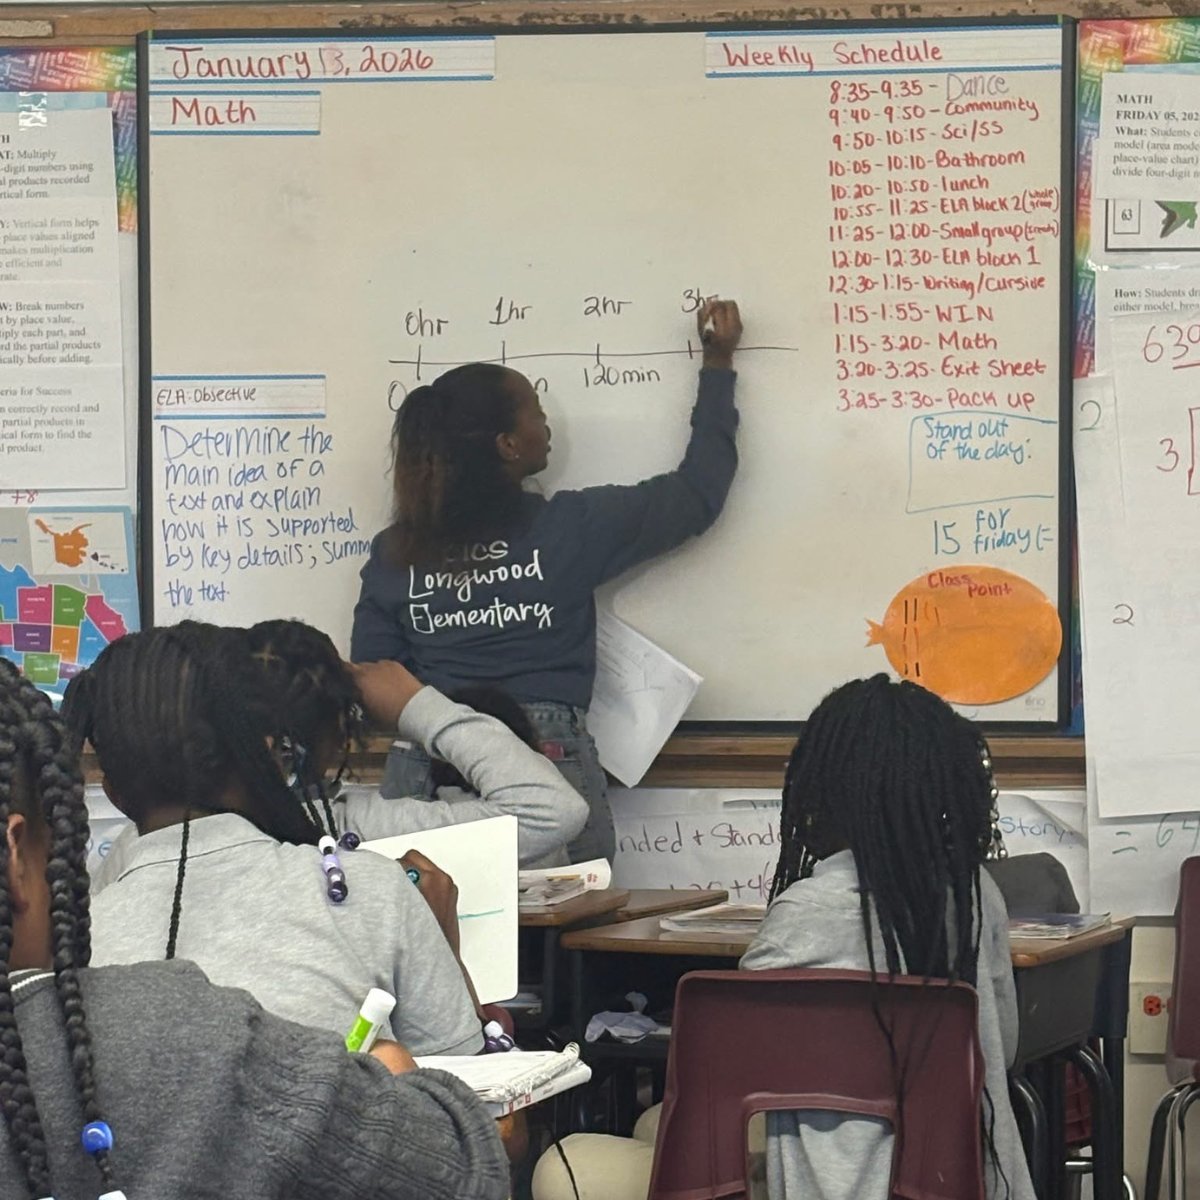 January 13, 2026
Math
Weekly Schedule
8:35-9:35 - Dance
9:40-9:50 - Community
9:50-10:15 - Sci/SS
10:05-10:10-Bathroom
10:20-10:50-lunch
10:55-11:25-ELA block 2 (whole group)
11:25-12:00-Small group
12:00-12:30-ELA block 1
12:30-1:15-Writing/Cursive
1:15-1:55-WIN
1:15-3:20-Math
3:20-3:25-Exit Sheet
3:25-3:30-Pack up
Stand out
of the day:
15 for
friday
Class
Point
0hr 1hr 2hr 3hr
0 120min
ELA:Objective
Determine the
main idea of a
text and explain
how it is supported
by key details; summ
the text.
Longwood
Elementary
AT: Multiply
-digit numbers using
al products recorded
rtical form.
Y: Vertical form helps
place values aligned
makes multiplication
efficient and
rate.
W: Break numbers
t by place value,
tiply each part, and
rd the partial products
ically before adding.
eria for Success
n correctly record and
partial products in
ical form to find the
l product.
MATH
FRIDAY 05, 202
What: Students c
model (area mode
place-value chart)
divide four-digit n
63
How: Students dr
either model, brea
630
2
3
2
= 64
nded + Standa
Story: